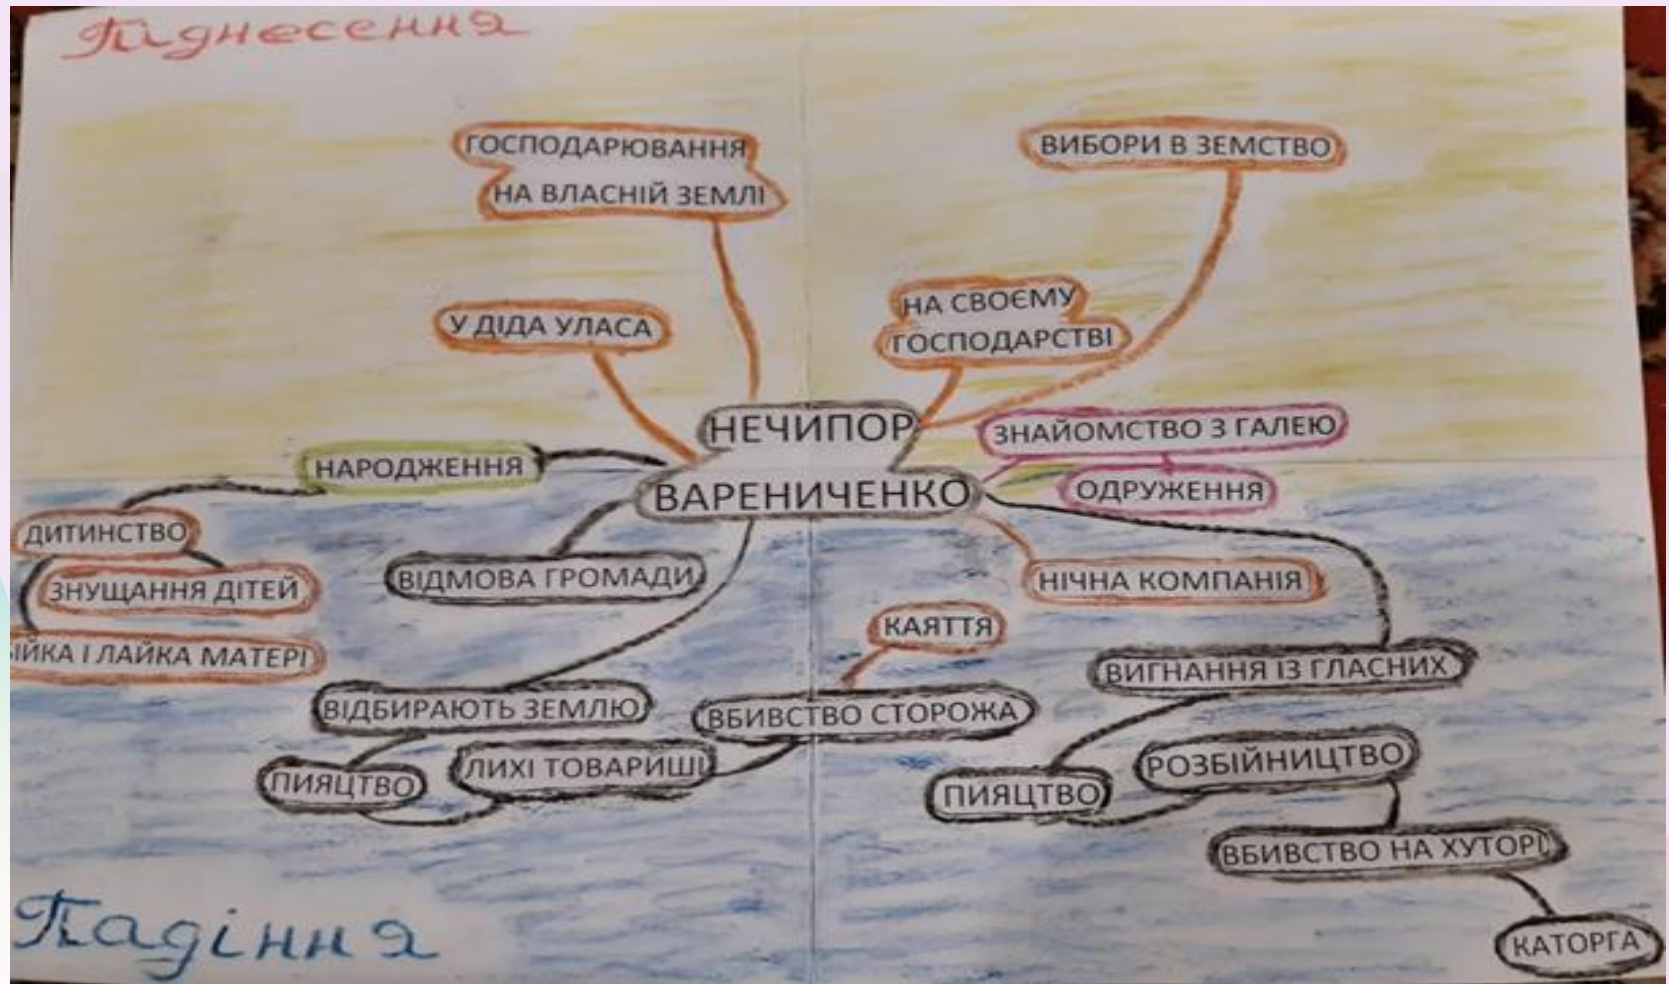 Піднесення
ГОСПОДАРЮВАННЯ
НА ВЛАСНІЙ ЗЕМЛІ
ВИБОРИ В ЗЕМСТВО
У ДІДА УЛАСА
НА СВОЄМУ
ГОСПОДАРСТВІ
НЕЧИПОР
ВАРЕНИЧЕНКО
ЗНАЙОМСТВО З ГАЛЕЮ
ОДРУЖЕННЯ
НАРОДЖЕННЯ
ДИТИНСТВО
ЗНУЩАННЯ ДІТЕЙ
ІЙКА І ЛАЙКА МАТЕРІ
ВІДМОВА ГРОМАДИ
НІЧНА КОМПАНІЯ
КАЯТТЯ
ВИГНАННЯ ІЗ ГЛАСНИХ
ВІДБИРАЮТЬ ЗЕМЛЮ
ВБИВСТВО СТОРОЖА
ПИЯЦТВО
ЛИХІ ТОВАРИШІ
ПИЯЦТВО
РОЗБІЙНИЦТВО
ВБИВСТВО НА ХУТОРІ
КАТОРГА
Падіння